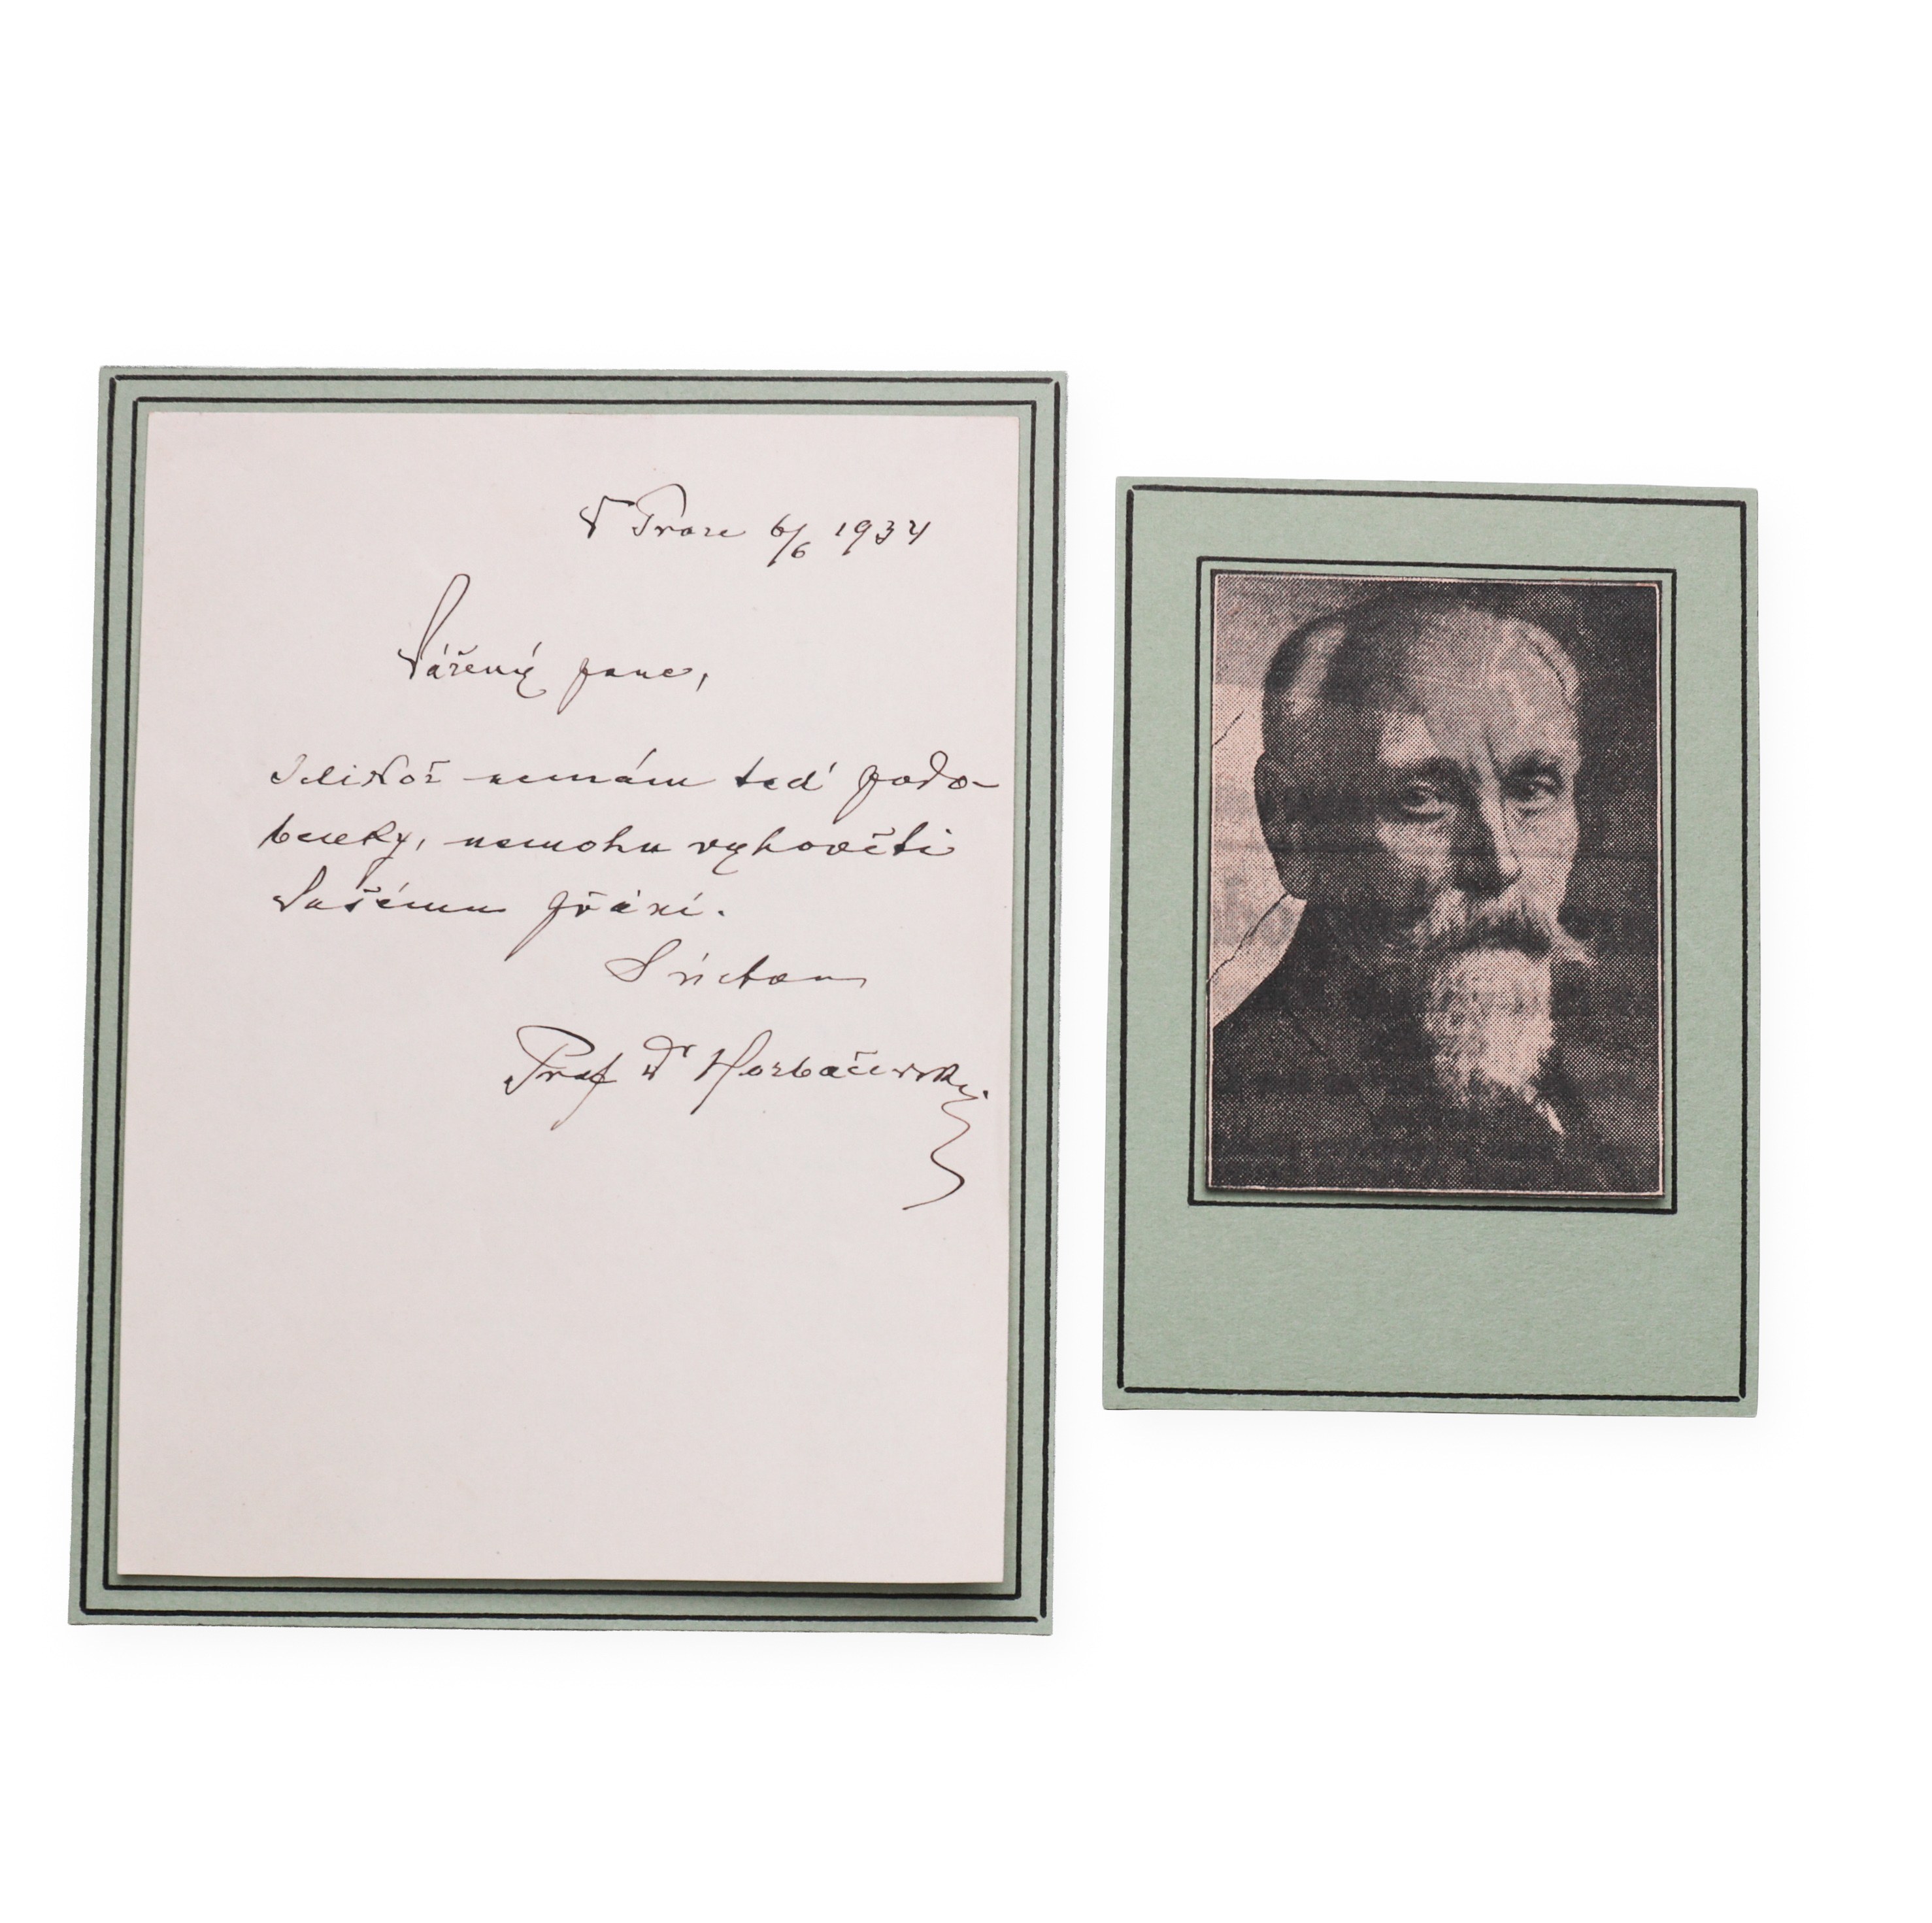 V Praze 6/6 1934
Vážený pane,
Jelikož nemám teď podo-
benky, nemohu vyhověti
Vašemu přání.
S úctou
Prof Dr Horbačevský